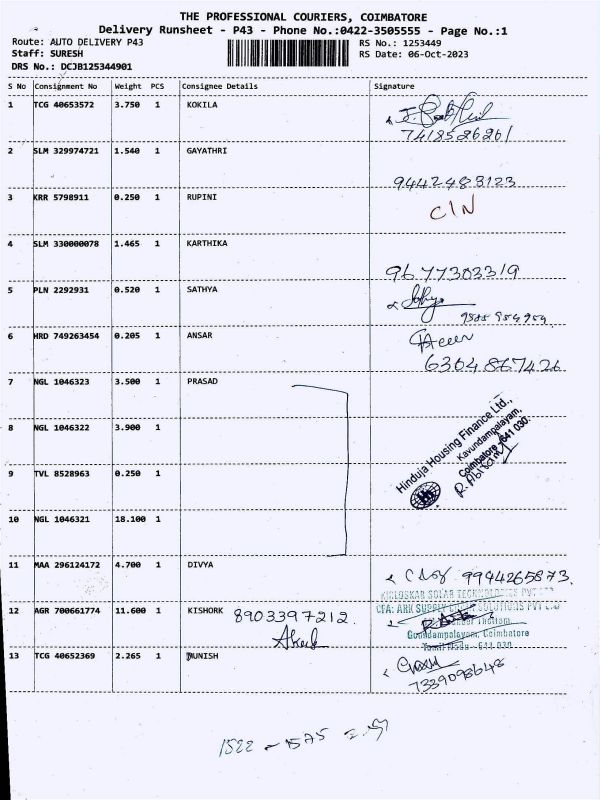 THE PROFESSIONAL COURIERS, COIMBATORE
Delivery Runsheet - P43 - Phone No.:0422-3505555 - Page No.:1
Route: AUTO DELIVERY P43
RS No.: 1253449
Staff: SURESH
RS Date: 06-Oct-2023
DRS No.: DCJB125344901
S No Consignment No Weight PCS Consignee Details Signature
1 TCG 40653572 3.750 1 KOKILA
7418526261
2 SLM 329974721 1.540 1 GAYATHRI
9442488123
3 KRR 5798911 0.250 1 RUPINI
C/N
4 SLM 330000078 1.465 1 KARTHIKA
9677303319
5 PLN 2292931 0.520 1 SATHYA
9585 954959
6 HRD 749263454 0.205 1 ANSAR
6304867426
7 NGL 1046323 3.500 1 PRASAD
8 NGL 1046322 3.900 1
Hinduja Housing Finance Ltd.,
Kavundampalayam,
Coimbatore - 641 030.
9 TVL 8528963 0.250 1
10 NGL 1046321 18.100 1
11 MAA 296124172 4.700 1 DIVYA
9944265873.
KIRLOSKAR SOLAR TECHNOLOGIES PVT
12 AGR 700661774 11.600 1 KISHORK 8903397212
CFA: ARK SUPPLY SOLUTIONS PVT
Thottam
Goundampalayam, Coimbatore
Tamil Nadu - 641 030
13 TCG 40652369 2.265 1 MUNISH
7339098648
1522 - 1575